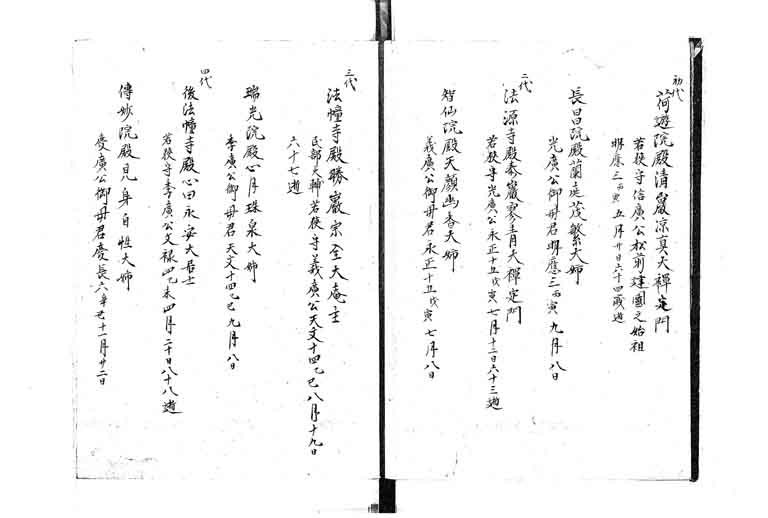 初代
荷遊院殿清巖凉真大禅定門
若狭守信廣公松前建國之始祖
明應三丙寅五月廿日六十四歳逝
長昌院殿蘭庭茂繁大姉
光廣公御母君明應三丙寅九月八日
二代
法源寺殿泰巖寥青大禅定門
若狭守光廣公永正十五戊寅七月十二日六十三逝
智仙院殿天顔幽香大姉
義廣公御母君永正十五戊寅七月八日
三代
法幢寺殿勝巖宗全大庵主
民部大輔若狭守義廣公天文十四乙巳八月十九日
六十七逝
瑞光院殿心月珠泉大姉
季廣公御母君天文十四乙巳九月八日
四代
後法幢寺殿心田永安大居士
若狭守季廣公文禄四乙未四月二十日八十八逝
傳妙院殿見身自性大姉
慶廣公御母君慶長六辛丑十一月廿二日